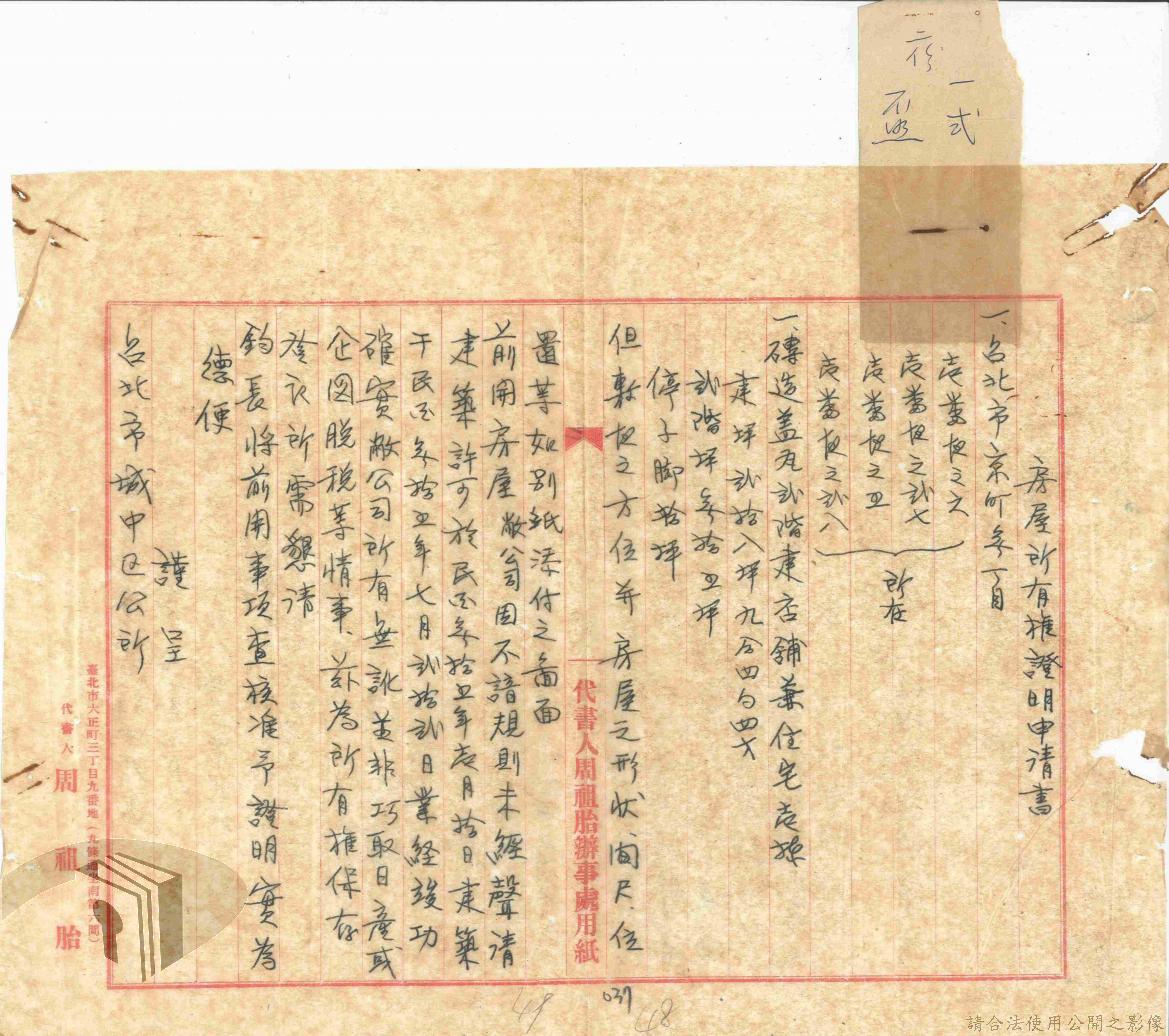 一式
二份
房屋所有権證明申請書
一、台北市京町參丁目
壱番地之六
壱番地之弍七
壱番地之五
壱番地之弍八
所在
一、磚造蓋瓦弍階建店舖兼住宅壱棟
建坪弍拾八坪九合四勺四才
弍階坪參拾五坪
停子脚拾坪
但敷地之方位并房屋之形狀、間尺、位
置等如別紙添付之畓面
前開房屋敝公司因不諳規則未經聲請
建築許可於民国參拾五年壱月拾日建築
于民国參拾五年七月弍拾弍日業経竣功
確實敝公司所有無訛並非巧取日產或
企図脱税等情事、茲為所有権保存
登記所需懇請
鈞長將前開事項查核准予證明實為
德便
謹呈
台北市城中区公所
代書人周祖胎辦事處用紙
臺北市大正町三丁目九番地
代書人 周祖胎
037
48
49
請合法使用公開之影像